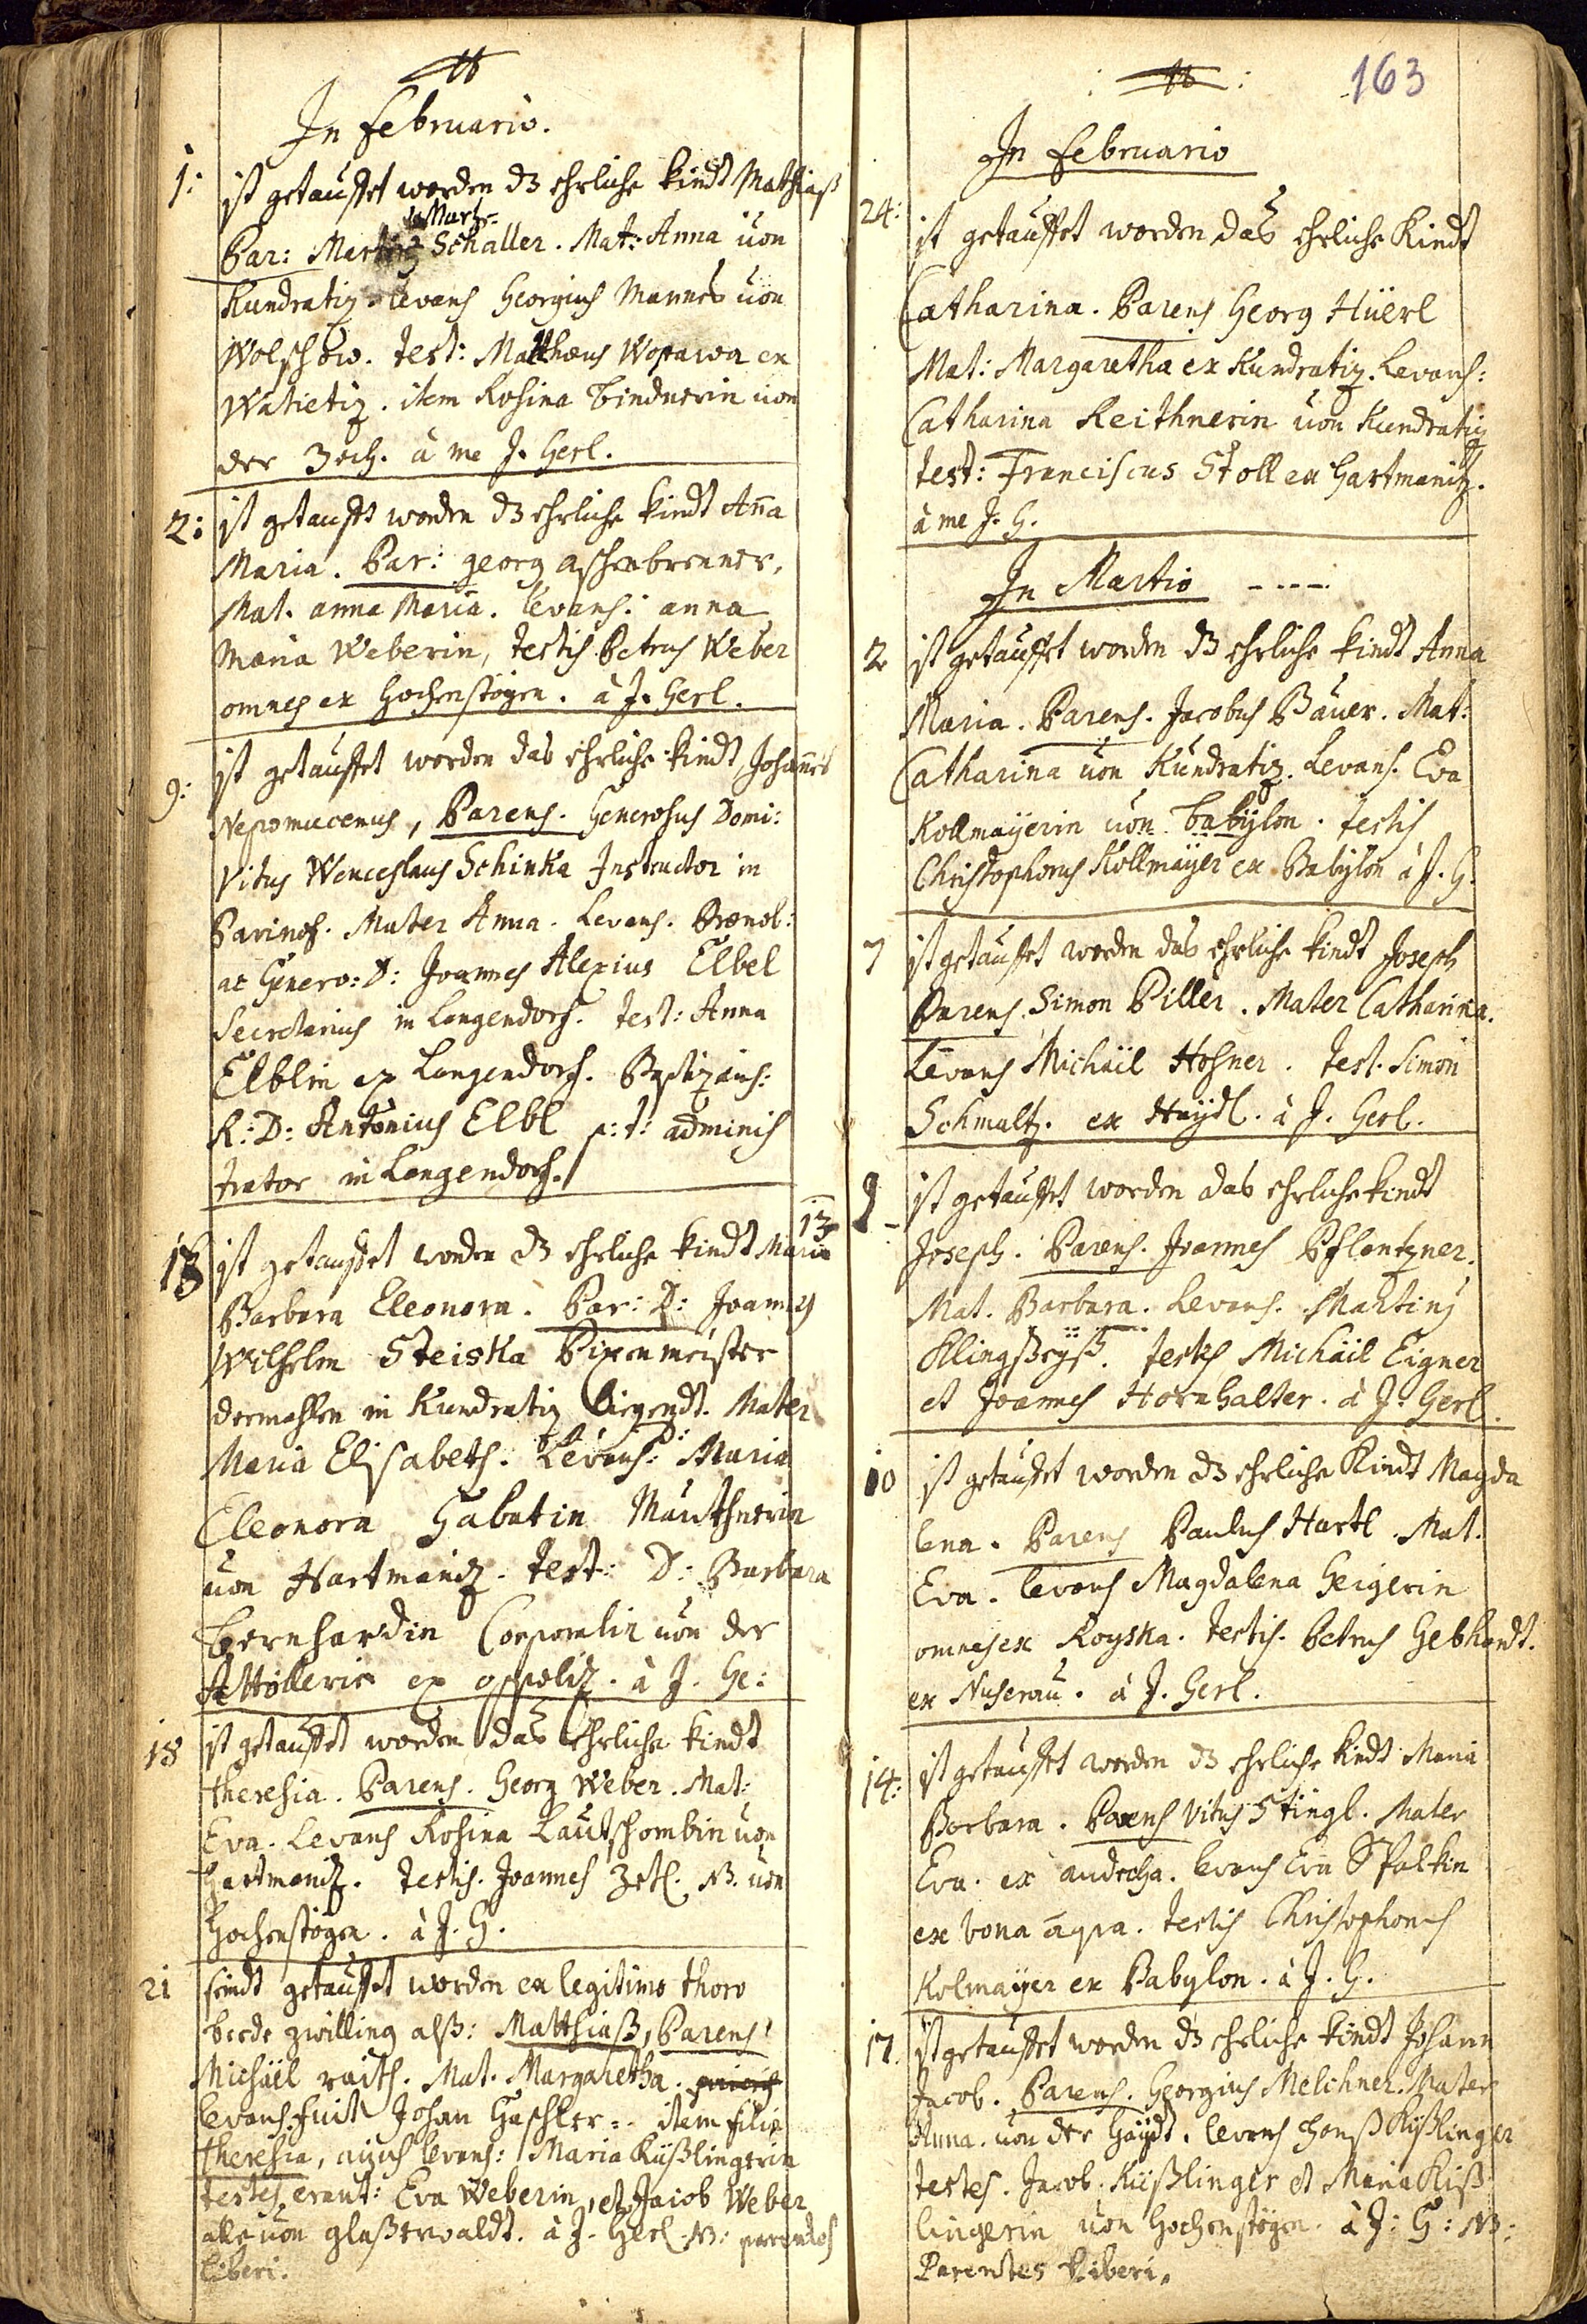 In februario.
1: ist getauffet worden dz ehrliche kindt Mathiaß
Par: Martin Schaller. Mat: Anna uon
Kundratiz. Levans Georgius Mannes uon
Wolschow. test: Matthæus Woparwa ex
Watietiz. item Rosina Bindnerin uon
der Zech. à me J. Gerl.
2: ist getaufft worden dz ehrliche kindt Ana
Maria. Par: georg aschenbrenner,
Mat. anna Maria. levans: anna
Maria Weberin, testis Petrus Weber
omnes ex Hochenstögen. à J. Gerl.
9: ist getauffet worden das ehrliche kindt, Johannes
Nepomucenus, Parens. Generosus Domi:
Vitus Wenceslaus Schinka Instructor in
Mater Anna. Levans. Prænob:
ac Genero: D: Joannes Alexius Elbel
Secretarius in Langendorf. Test: Anna
Elblin ex Langendorf. Baptizans:
R: D: Antonius Elbl p: t: adminis
trator in Langendorf.
13
13 ist getauffet worden dz ehrliche kindt Maria
Barbara Eleonora. Par: D: Joannes
Wilhelm Steiska Pixenmeister
dermahlen in Kundratiz ligendt. Mater
Maria Elisabeth. Levans: D: Maria
Eleonora Gabatin Mauthnerin
uon Hartmaniz. Test: D: Barbara
Bernhardin Corporalin uon der
Attollerie ex à J. Ge:
18 ist getauffet worden das ehrliche kindt
theresia. Parens. Georg Weber. Mat:
Eva. Levans Rosina Lautschombin uon
Hartmaniz. Testis. Joannes Zetl. NB. uon
Hochenstögen. à J. G.
21 seindt getauffet worden ex legitimo thoro
beede zwilling alß: Matthiaß, Parens
Michäel raith. Mat. Margaretha.
levans fuit Johan Gaschler: item filia
theresia, cujus levans: Maria Küßlingerin
testes erant: Eva Weberin, et Jacob Weber
alle uon glaßerwaldt. à J. Gerl. NB: parentes
liberi.
163
In februario
24: ist getauffet worden das ehrliche Kindt
Catharina. Parens Georg Hüerl
Mat: Margaretha ex Kundratiz. Levans:
Catharina Reithnerin uon Kundratiz
test: Franciscus Stoll ex Hartmanitz.
à me J. G.
In Martio ----
2 ist getauffet worden dz ehrliche kindt Anna
Maria. Parens. Jacobus Bauer. Mat:
Catharina uon Kundratiz. Levans. Eva
Kollmayerin uon babylon. testis
Christophorus Kollmayer ex Babylon à J. G.
7 ist getauffet worden das ehrliche kindt Joseph
Parens. Simon Piller. Mater Catharina.
Levans Michäil Hosner. test. Simon
Schmaltz. ex Haydl. à J. Gerl.
9 ist getauffet worden das ehrliche kindt
Joseph. Parens. Joannes Pflantzner.
Mat. Barbara. Levans. Martinus
testes Michäil Eigner
et Joannes Hornhalter. à J. Gerl.
10 ist getauffet worden dz ehrliche Kindt Magda
lena. Parens Paulus Hartl. Mat.
Eva. levans Magdalena Geigerin
omnes ex Royska. testis. Petrus Gebhardt.
ex Nuserau. à J. Gerl.
14: ist getauffet worden dz ehrliche kindt Maria
Barbara. Parens Vitus Stingl. Mater
Eva. ex levans Eva Spatkin
ex bona aqva. testis Christophorus
Kolmayer ex Babylon. à J. G.
17. ist getauffet worden dz ehrliche kindt Johann
Jacob. Parens. Georgius Melchner. Mater
Anna. uon der Haydt. levans hanß Kißlinger
testes. Jacob. Küßlinger et Maria Kiß
lingerin uon Hochenstögen. à J: G: NB:
Parentes liberi.